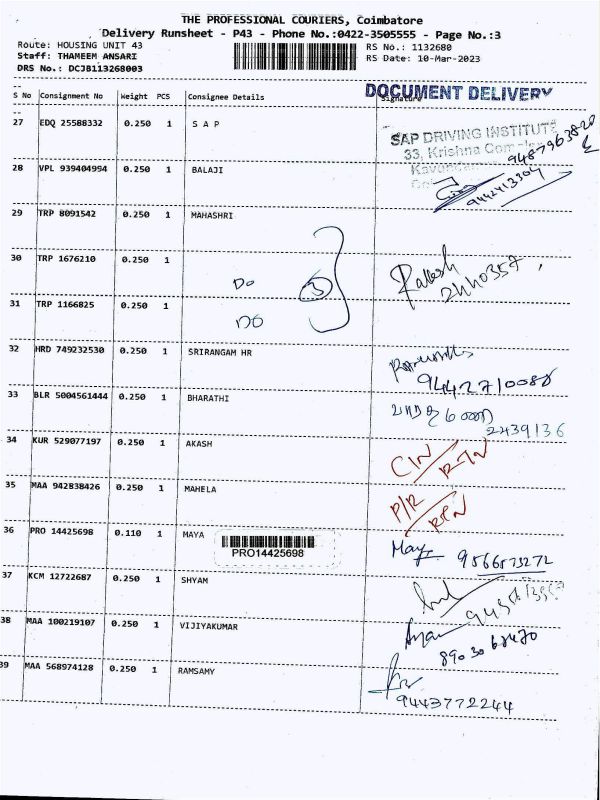 THE PROFESSIONAL COURIERS, Coimbatore
Delivery Runsheet - P43 - Phone No.:0422-3505555 - Page No.:3
Route: HOUSING UNIT 43 RS No.: 1132680
Staff: THAMEEM ANSARI RS Date: 10-Mar-2023
DRS No.: DCJB113268003
DOCUMENT DELIVERY
S No Consignment No Weight PCS Consignee Details Signature
27 EDQ 25588332 0.250 1 S A P
SAP DRIVING INSTITUTE
33, Krishna
9487963820
28 VPL 939404994 0.250 1 BALAJI
9442413304
29 TRP 8091542 0.250 1 MAHASHRI
30 TRP 1676210 0.250 1 Do 3 Rakesh
2440357
31 TRP 1166825 0.250 1 Do
32 HRD 749232530 0.250 1 SRIRANGAM HR
9442710088
33 BLR 5004561444 0.250 1 BHARATHI
2439136
34 KUR 529077197 0.250 1 AKASH C/N RTN
35 MAA 942838426 0.250 1 MAHELA P/R RTN
36 PRO 14425698 0.110 1 MAYA PRO14425698 Maya 9566573272
37 KCM 12722687 0.250 1 SHYAM
38 MAA 100219107 0.250 1 VIJIYAKUMAR
39 MAA 568974128 0.250 1 RAMSAMY
9443772244